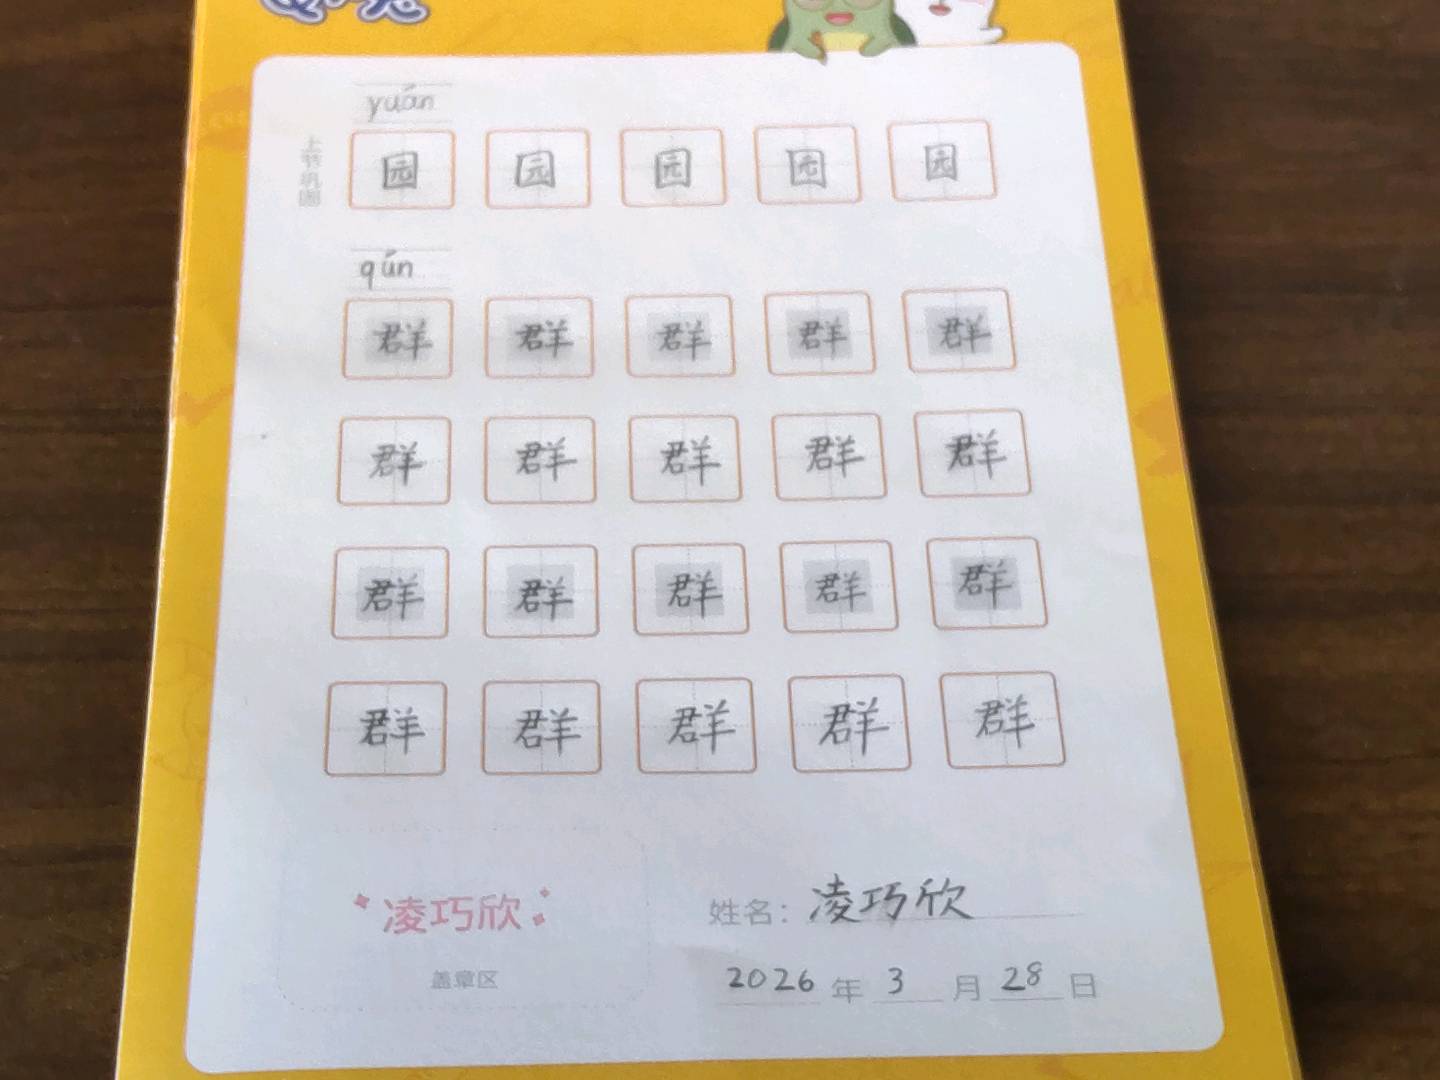 yuán
上节巩固
园 园 园 园 园
qún
群 群 群 群 群
群 群 群 群 群
群 群 群 群 群
群 群 群 群 群
凌巧欣
盖章区
姓名：凌巧欣
2026 年 3 月 28 日